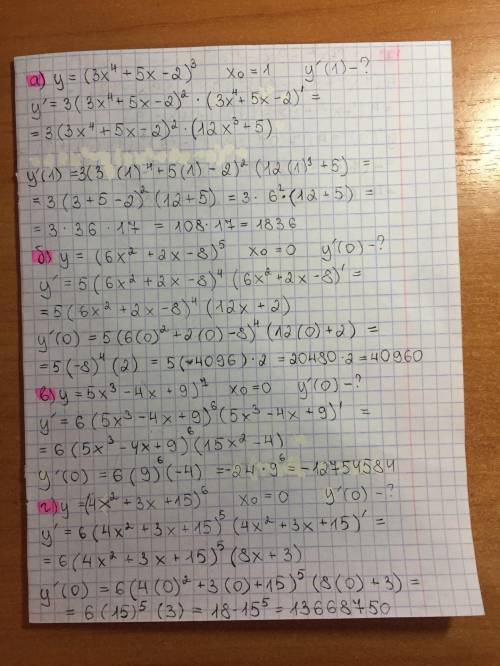 а) y = (3x⁴ + 5x - 2)³ x₀ = 1 y'(1) - ?
y' = 3(3x⁴ + 5x - 2)² · (3x⁴ + 5x - 2)' =
= 3(3x⁴ + 5x - 2)² · (12x³ + 5)
y'(1) = 3(3 (1)⁻⁴ + 5(1) - 2)² (12(1)³ + 5) =
= 3(3 + 5 - 2)² (12 + 5) = 3 · 6² · (12 + 5) =
= 3 · 36 · 17 = 108 · 17 = 1836
б) y = (6x² + 2x - 8)⁵ x₀ = 0 y'(0) - ?
y' = 5(6x² + 2x - 8)⁴ (6x² + 2x - 8)' =
= 5(6x² + 2x - 8)⁴ (12x + 2)
y'(0) = 5(6(0)² + 2(0) - 8)⁴ (12(0) + 2) =
= 5(-8)⁴ (2) = 5(4096) · 2 = 20480 · 2 = 40960
в) y = 5x³ - 4x + 9)⁷ x₀ = 0 y'(0) - ?
y' = 6(5x³ - 4x + 9)⁶ (5x³ - 4x + 9)' =
= 6(5x³ - 4x + 9)⁶ (15x² - 4)
y'(0) = 6(9)⁶ (-4) = -24 · 9⁶ = -12754584
г) y = (4x² + 3x + 15)⁶ x₀ = 0 y'(0) - ?
y' = 6(4x² + 3x + 15)⁵ (4x² + 3x + 15)' =
= 6(4x² + 3x + 15)⁵ (8x + 3)
y'(0) = 6(4(0)² + 3(0) + 15)⁵ (8(0) + 3) =
= 6(15)⁵ (3) = 18 · 15⁵ = 13668750